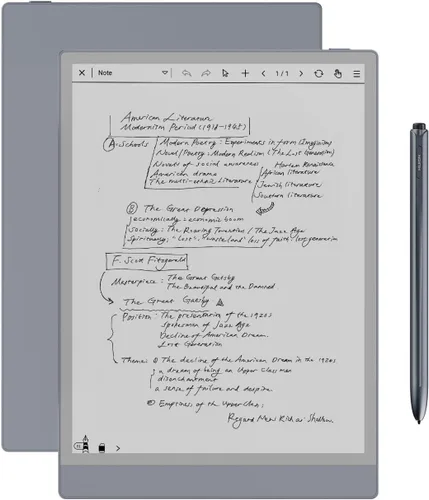 Note
1/1
American Literature
Modernism Period (1914-1945)
A. Schools
Modern Poetry: Experiments in form (Imagism)
Novel/Poetry: Modern Realism (The Lost Generation)
Novels of social awareness
Harlem Renaissance
American drama
African literature
The multi-ethnic Literature
Jewish literature
Southern literature
B The Great Depression
economically: economic boom
Socially: The Roaring Twenties / The Jazz Age
Spiritually: "Lost", "wasteland" loss of faith
F. Scott Fitzgerald
Masterpiece: The Great Gatsby
The Beautiful and the Damned
The Great Gatsby
Position: The presentation of the 1920s
Spokesman of Jazz Age
Decline of American Dream
Lost Generation
Theme: ① The decline of the American Dream in the 1920s
a dream of being an Upper Class man
disenchantment
a sense of failure and despise
② Emptiness of the Upper Class:
Regard